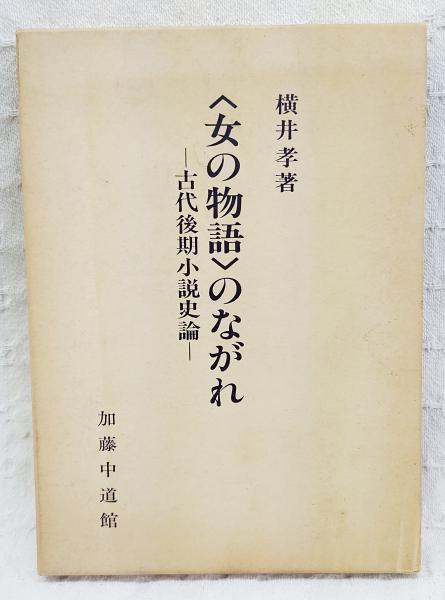 横井孝著
〈女の物語〉のながれ
―古代後期小説史論―
加藤中道館